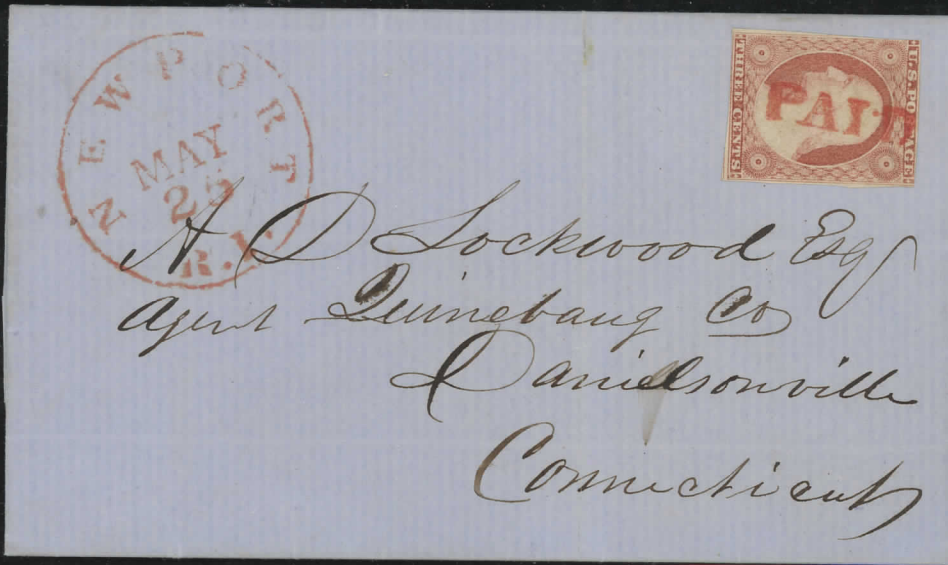 NEWPORT
MAY
25
R.I.
U.S. POSTAGE
THREE CENTS
PAID
A D Lockwood Esq
Agent Quinebaug Co
Danielsonville
Connecticut